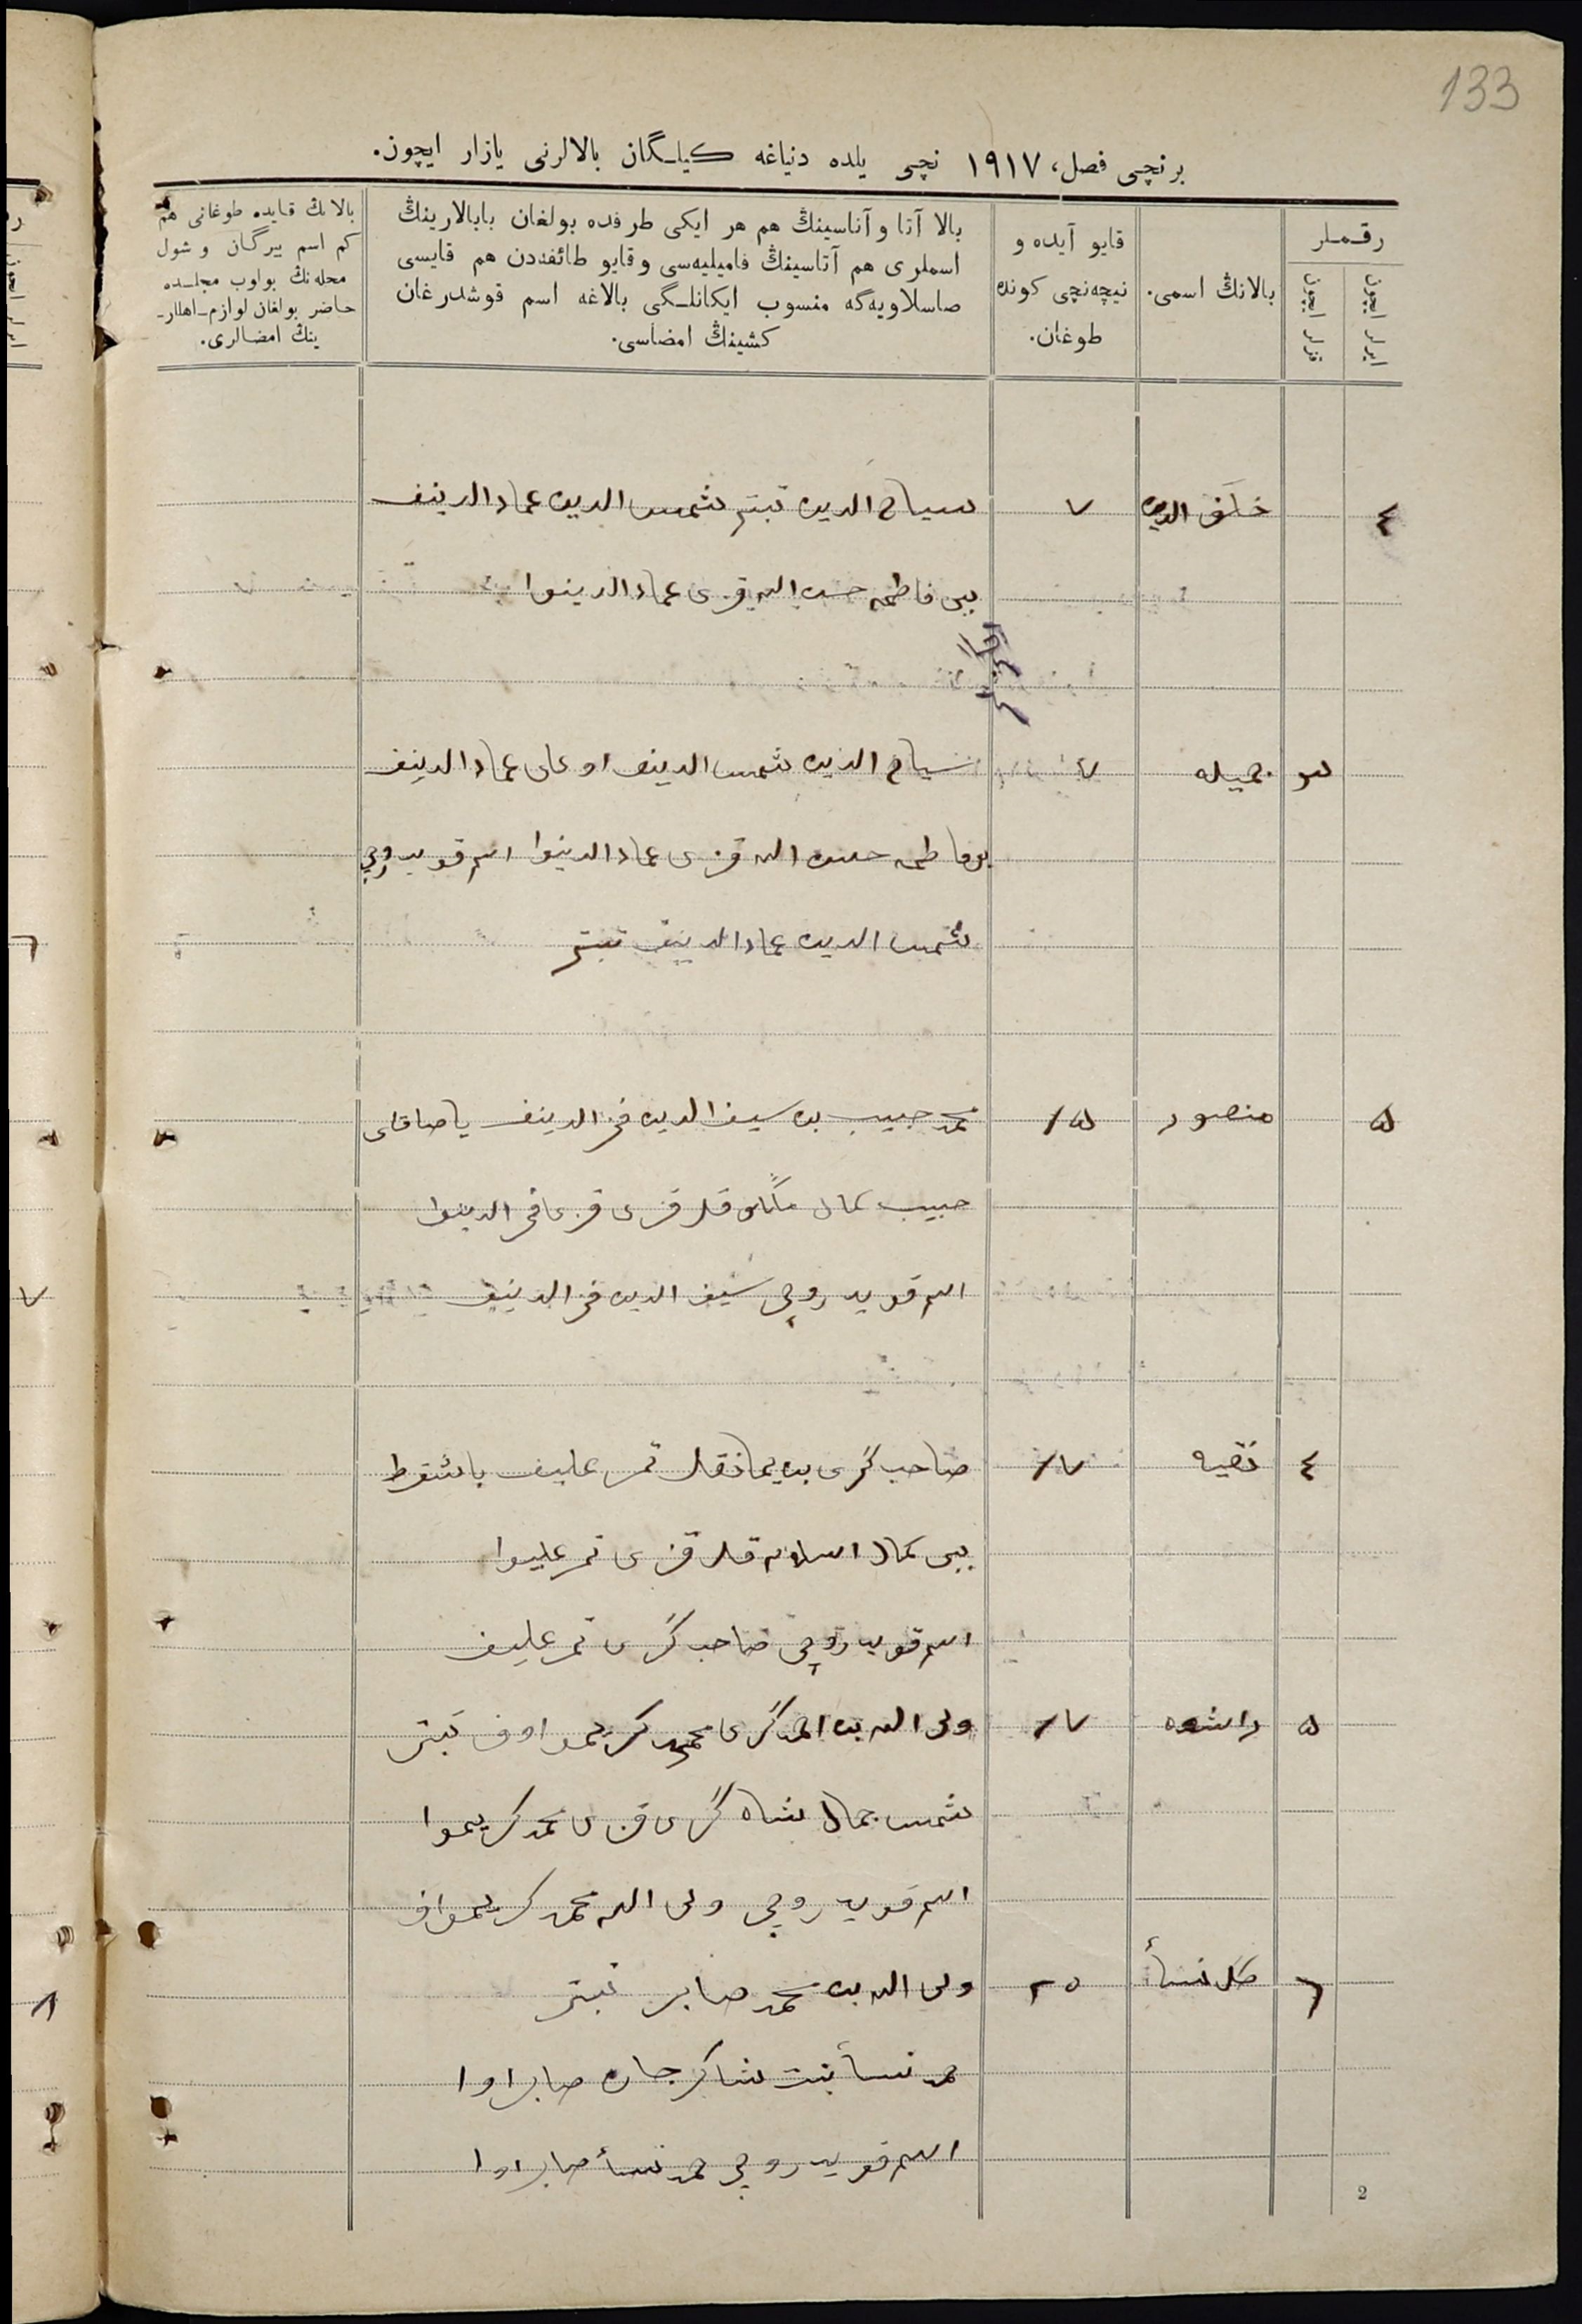 133
برنچی فصل، ١٩١٧ نچی یلده دنیاغه كیلـگان بالالرنی یازار ایچون.
رقـملر
ایرلر ایچون
قزلر ایچون
بالانڭ اسمی.
قایو آیده و
نیچه‌نچی كونده
طوغان.
بالا آتا و آناسینڭ هم هر ایكی طرفده بولغان بابالارینڭ
اسملری هم آتاسینڭ فامیلیه‌سی و قایو طائفه‌دن هم قایسی
صاسلاویه‌گه منسوب ایكانلـگی بالاغه اسم قوشدرغان
كشینڭ امضاسی.
بالانڭ قایده طوغانی هم
كم اسم بیرگان و شول
محله‌نڭ بولوب مجلـسده
حاضر بولغان لوازم اهللر-
ینڭ امضالری.
٤ خلف الدین ٧ سیاح الدین تبتر شمس الدین عماد الدینف
بیبی فاطمه حسن الله قزی عماد الدینوا
٣ جمیله ٧ سیاح الدین شمس الدینف اوغلی عماد الدینف
بیبی فاطمه حسن الله قزی عماد الدینوا اسم قویدروچی
شمس الدین عماد الدینف تبتر
٥ منصور ١٥ محمد حبیب بن سیف الدین فخر الدینف یاصاقلی
حبیب كمال قزی فخر الدینوا
اسم قویدروچی سیف الدین فخر الدینف
٤ نقیه ١٧ صاحب گری بن تمر علیف باشقرط
بیبی كمال اسلام قلی قزی تمر علیوا
اسم قویدروچی صاحب گری تمر علیف
٥ ١٧ ولی الله بن احمد گری محمد كریموف تبتر
شمس جمال شاه گری قزی محمد كریموا
اسم قویدروچی ولی الله محمد كریموف
٦ گل نسأ ٢٥ ولی الله بن محمد صابر تبتر
نسأ بنت شاكرجان صابراوا
اسم قویدروچی نسأ صابراوا
2